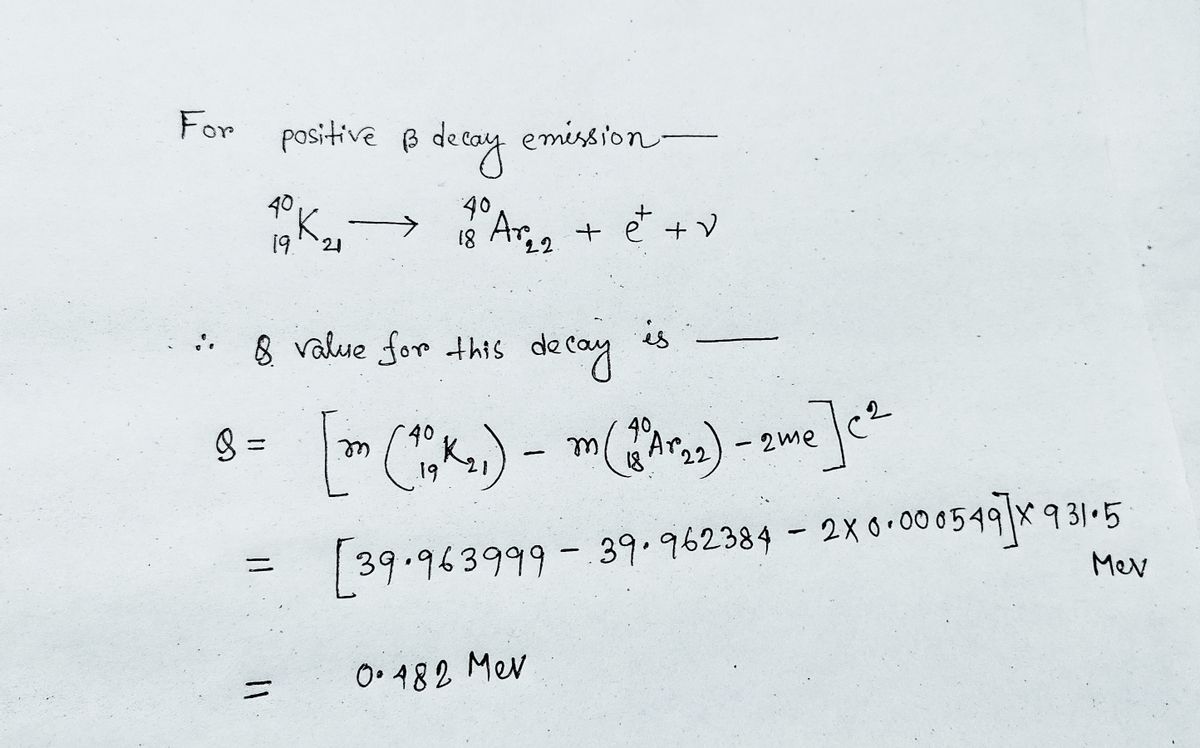 For positive β decay emission —
⁴⁰₁₉K₂₁ ⟶ ⁴⁰₁₈Ar₂₂ + e⁺ + ν
∴ Q value for this decay is —
Q = [m(⁴⁰₁₉K₂₁) - m(⁴⁰₁₈Ar₂₂) - 2me]c²
= [39.963999 - 39.962384 - 2×0.000549]×931.5
Mev
= 0.482 Mev